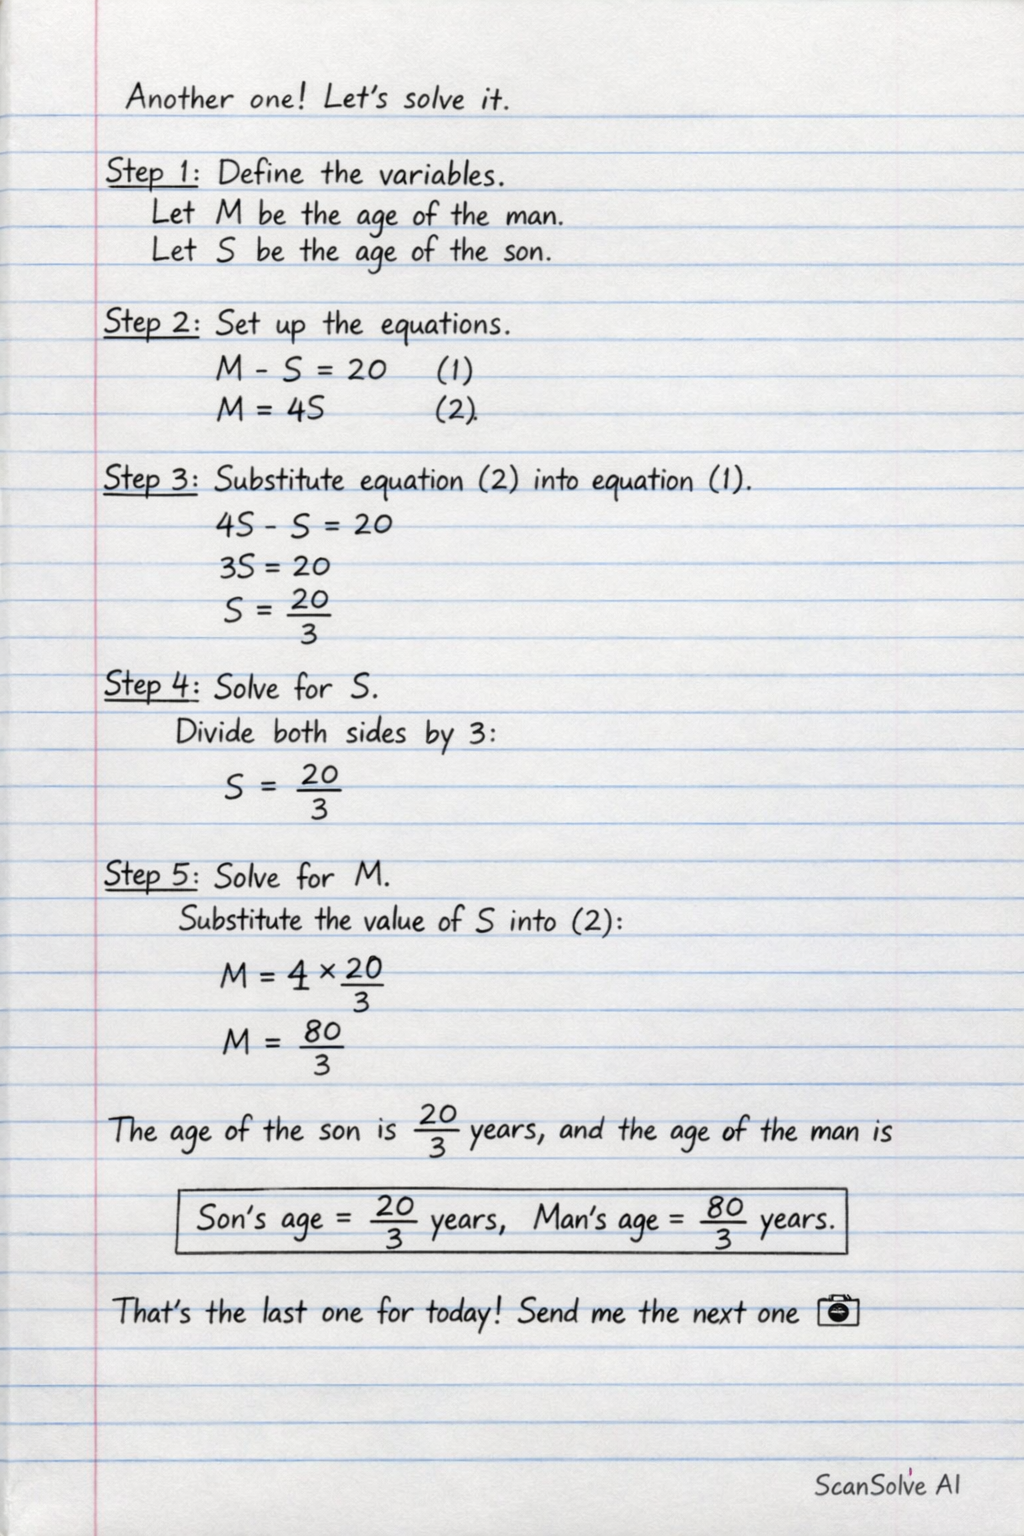 Another one! Let's solve it.
Step 1: Define the variables.
Let M be the age of the man.
Let S be the age of the son.
Step 2: Set up the equations.
M - S = 20 (1)
M = 4S (2).
Step 3: Substitute equation (2) into equation (1).
4S - S = 20
3S = 20
S = 20/3
Step 4: Solve for S.
Divide both sides by 3:
S = 20/3
Step 5: Solve for M.
Substitute the value of S into (2):
M = 4 × 20/3
M = 80/3
The age of the son is 20/3 years, and the age of the man is
Son's age = 20/3 years, Man's age = 80/3 years.
That's the last one for today! Send me the next one 📷
ScanSolve AI